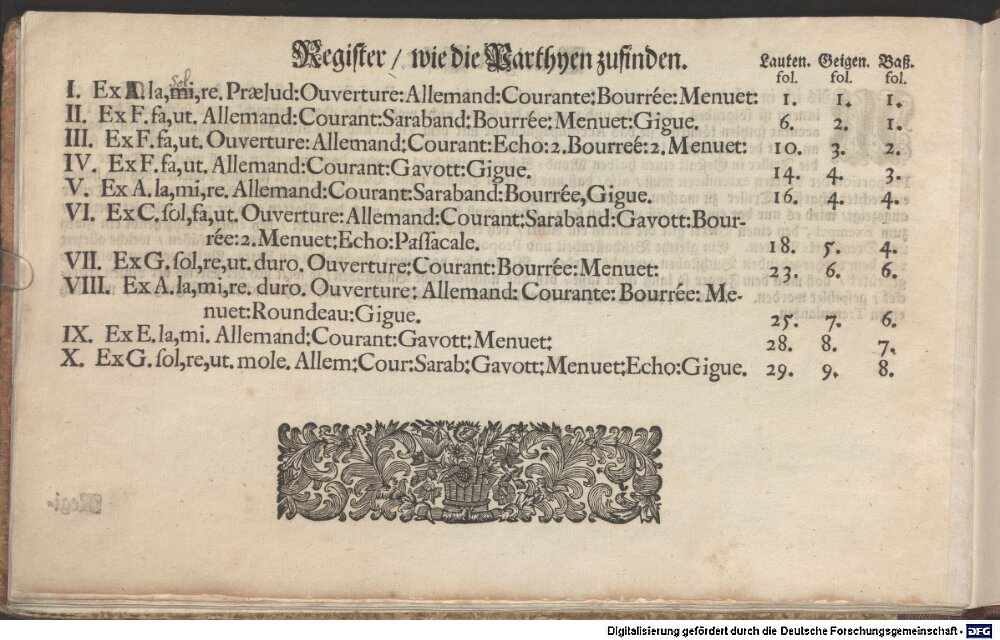 Register / wie die Parthyen zufinden. Lauten. Geigen. Baß.
fol. fol. fol.
I. Ex A. la, mi, re. Prælud: Ouverture: Allemand: Courante: Bourrée: Menuet: 1. 1. 1.
II. Ex F. fa, ut. Allemand: Courant: Saraband: Bourrée: Menuet: Gigue. 6. 2. 1.
III. Ex F. fa, ut. Ouverture: Allemand: Courant: Echo: 2. Bourreé: 2. Menuet: 10. 3. 2.
IV. Ex F. fa, ut. Allemand: Courant: Gavott: Gigue. 14. 4. 3.
V. Ex A. la, mi, re. Allemand: Courant: Saraband: Bourrée, Gigue. 16. 4. 4.
VI. Ex C. ſol, fa, ut. Ouverture: Allemand: Courant: Saraband: Gavott: Bour-
rée: 2. Menuet: Echo: Paſſacale. 18. 5. 4.
VII. Ex G. ſol, re, ut. duro. Ouverture: Courant: Bourrée: Menuet: 23. 6. 6.
VIII. Ex A. la, mi, re. duro. Ouverture: Allemand: Courante: Bourrée: Me-
nuet: Roundeau: Gigue. 25. 7. 6.
IX. Ex E. la, mi. Allemand: Courant: Gavott: Menuet: 28. 8. 7.
X. Ex G. ſol, re, ut. mole. Allem: Cour: Sarab: Gavott: Menuet: Echo: Gigue. 29. 9. 8.
Digitalisierung gefördert durch die Deutsche Forschungsgemeinschaft - DFG